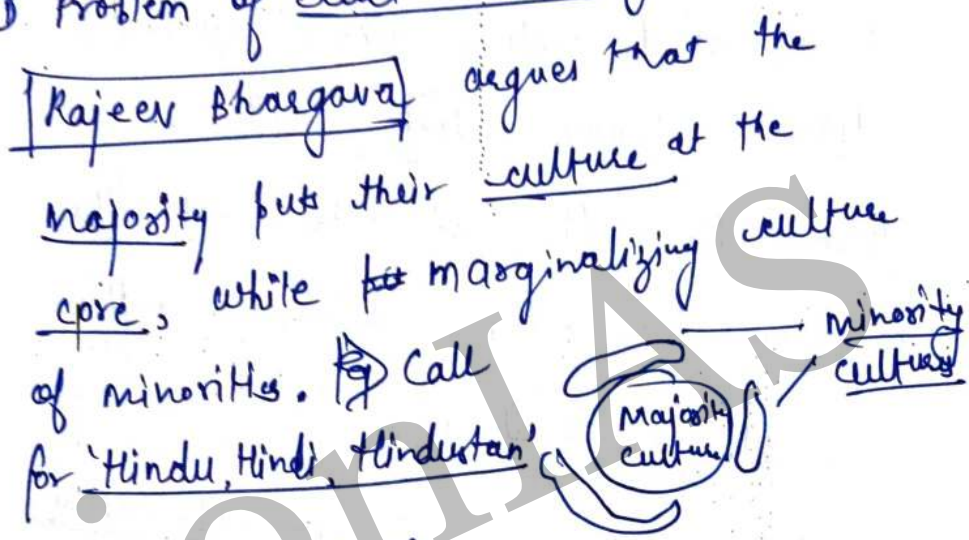 Problem of
Rajeev Bhargava argues that the
majority puts their culture at the
core, while marginalizing culture
of minorities. Eg Call
for 'Hindu, Hindi, Hindustan'
minority
cultures
Majority
culture
onIAS